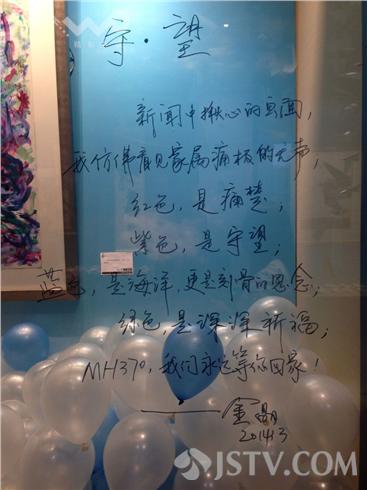 守·望
新闻中揪心的画面，
我仿佛看见家属痛极的无声；
红色，是痛楚；
紫色，是守望；
蓝色，是海洋，更是刻骨的思念；
绿色，是深深祈福；
MH370，我们永远等你回家！
——金鼎
2014.3
JSTV.COM